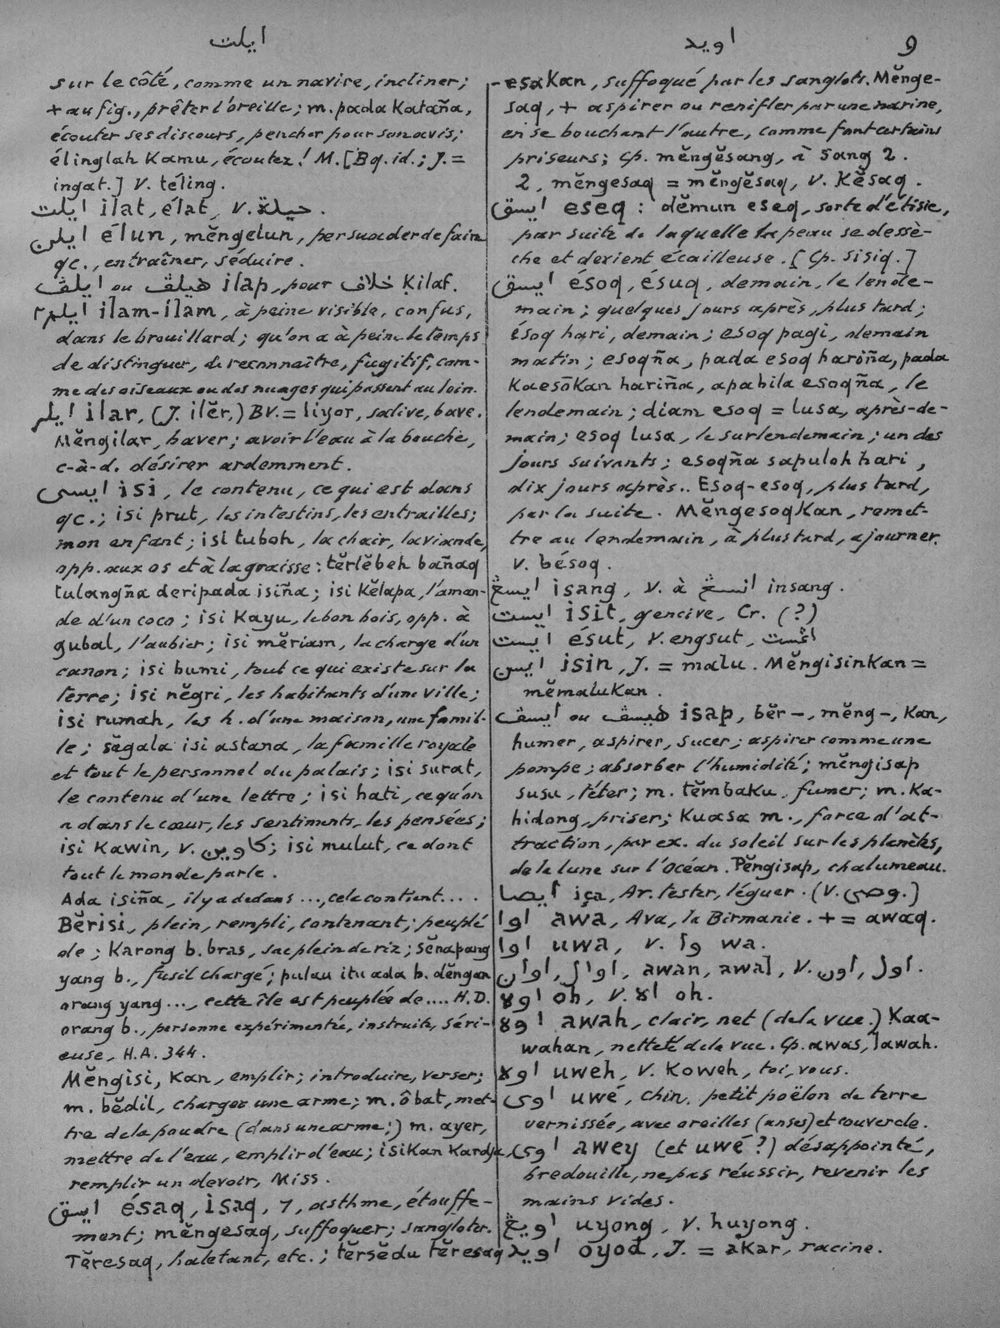 ايلت
اويد
9
sur le côté, comme un navire, incliner;
+ au fig., prêter l'oreille; m. pada kataña,
écouter ses discours, pencher pour son avis;
élinglah kamu, écoutez! M. [Bq. id.; J. =
ingat.] V. téling.
ايلت ilat, élat, V. حيلة.
ايلن élun, mĕngelun, persuader de faire
qc., entraîner, séduire.
ايلڤ ou هيلڤ ilap, pour خلاف kilaf.
ايلم٢ ilam-ilam, à peine visible, confus,
dans le brouillard; qu'on a à peine le temps
de distinguer, de reconnaître, fugitif, com-
me des oiseaux ou des nuages qui passent au loin.
ايلر ilar, (J. ilĕr,) BV. = liyor, salive, bave.
Mĕngilar, baver; avoir l'eau à la bouche,
c-à-d. désirer ardemment.
ايسى isi, le contenu, ce qui est dans
qc.; isi prut, les intestins, les entrailles;
mon enfant; isi tuboh, la chair, la viande,
opp. aux os et à la graisse: tĕrlĕbeh bañaq
tulangña deripada isiña; isi kĕlapa, l'aman-
de d'un coco; isi kayu, le bon bois, opp. à
gubal, l'aubier; isi mĕriam, la charge d'un
canon; isi bumi, tout ce qui existe sur la
terre; isi nĕgri, les habitants d'une ville;
isi rumah, les h. d'une maison, une famil-
le; sĕgala isi astana, la famille royale
et tout le personnel du palais; isi surat,
le contenu d'une lettre; isi hati, ce qu'on
a dans le cœur, les sentiments, les pensées;
isi kawin, V. كاوين; isi mulut, ce dont
tout le monde parle.
Ada isiña, il y a dedans ..., cela contient....
Bĕrisi, plein, rempli, contenant; peuplé
de; karong b. bras, sac plein de riz; sĕnapang
yang b., fusil chargé; pulau itu ada b. dĕngan
orang yang ..., cette île est peuplée de.... H.D.
orang b., personne expérimentée, instruite, séri-
euse, H.A. 344.
Mĕngisi, kan, emplir; introduire, verser;
m. bĕdil, charger une arme; m. ôbat, met-
tre de la poudre (dans une arme;) m. ayer,
mettre de l'eau, emplir d'eau; isikan kardja,
remplir un devoir, Miss.
ايسق ésaq, isaq, 7, asthme, étouffe-
ment; mĕngesaq, suffoquer; sangloter.
Tĕresaq, haletant, etc.; tĕrsĕdu tĕresaq
-esakan, suffoqué par les sanglots. Mĕnge-
saq, + aspirer ou renifler par une narine,
en se bouchant l'autre, comme font certains
priseurs; Cp. mĕngĕsang, à sang 2.
2, mĕngesaq = mĕngĕsaq, V. kĕsaq.
ايسق eseq: dĕmun eseq, sorte d'étisie,
par suite de laquelle la peau se dessè-
che et devient écailleuse. [Cp. sisiq.]
ايسق ésoq, ésuq, demain, le lende-
main; quelques jours après, plus tard;
ésoq hari, demain; esoq pagi, demain
matin; esoqña, pada esoq hariña, pada
kaesôkan hariña, apabila esoqña, le
lendemain; diam esoq = lusa, après-de-
main; esoq lusa, le surlendemain; un des
jours suivants; esoqña sapuloh hari,
dix jours après.. Esoq-esoq, plus tard,
par la suite. Mĕngesoqkan, remet-
tre au lendemain, à plus tard, ajourner.
V. bésoq.
ايسڠ isang, V. à انسڠ insang.
ايست isit, gencive, Cr. (?)
ايست ésut, V. engsut, اڠست
ايسن isin, J. = malu. Mĕngisinkan =
mĕmalukan.
ايسڤ ou هيسڤ isap, bĕr-, mĕng-, kan,
humer, aspirer, sucer; aspirer comme une
pompe; absorber l'humidité; mĕngisap
susu, téter; m. tĕmbaku, fumer; m. ka-
hidong, priser; kuasa m., force d'at-
traction, par ex. du soleil sur les planètes,
de la lune sur l'océan. Pĕngisap, chalumeau.
ايصا iça, Ar. tester, léguer. (V. وصى.)
اوا awa, Ava, la Birmanie. + = awaq.
اوا uwa, V. وا wa.
اوال, اوان, awan, awal, V. اول, اون.
اوه oh, V. اه oh.
اوه awah, clair, net (de la vue.) Kaa-
wahan, netteté de la vue. Cp. awas, jawah.
اوه uweh, V. koweh, toi, vous.
اوى uwé, Chin. petit poëlon de terre
vernissée, avec oreilles (anses) et couvercle.
اوى awey (et uwé?) désappointé,
bredouille, ne pas réussir, revenir les
mains vides.
اويڠ uyong, V. huyong.
اويد oyod, J. = akar, racine.